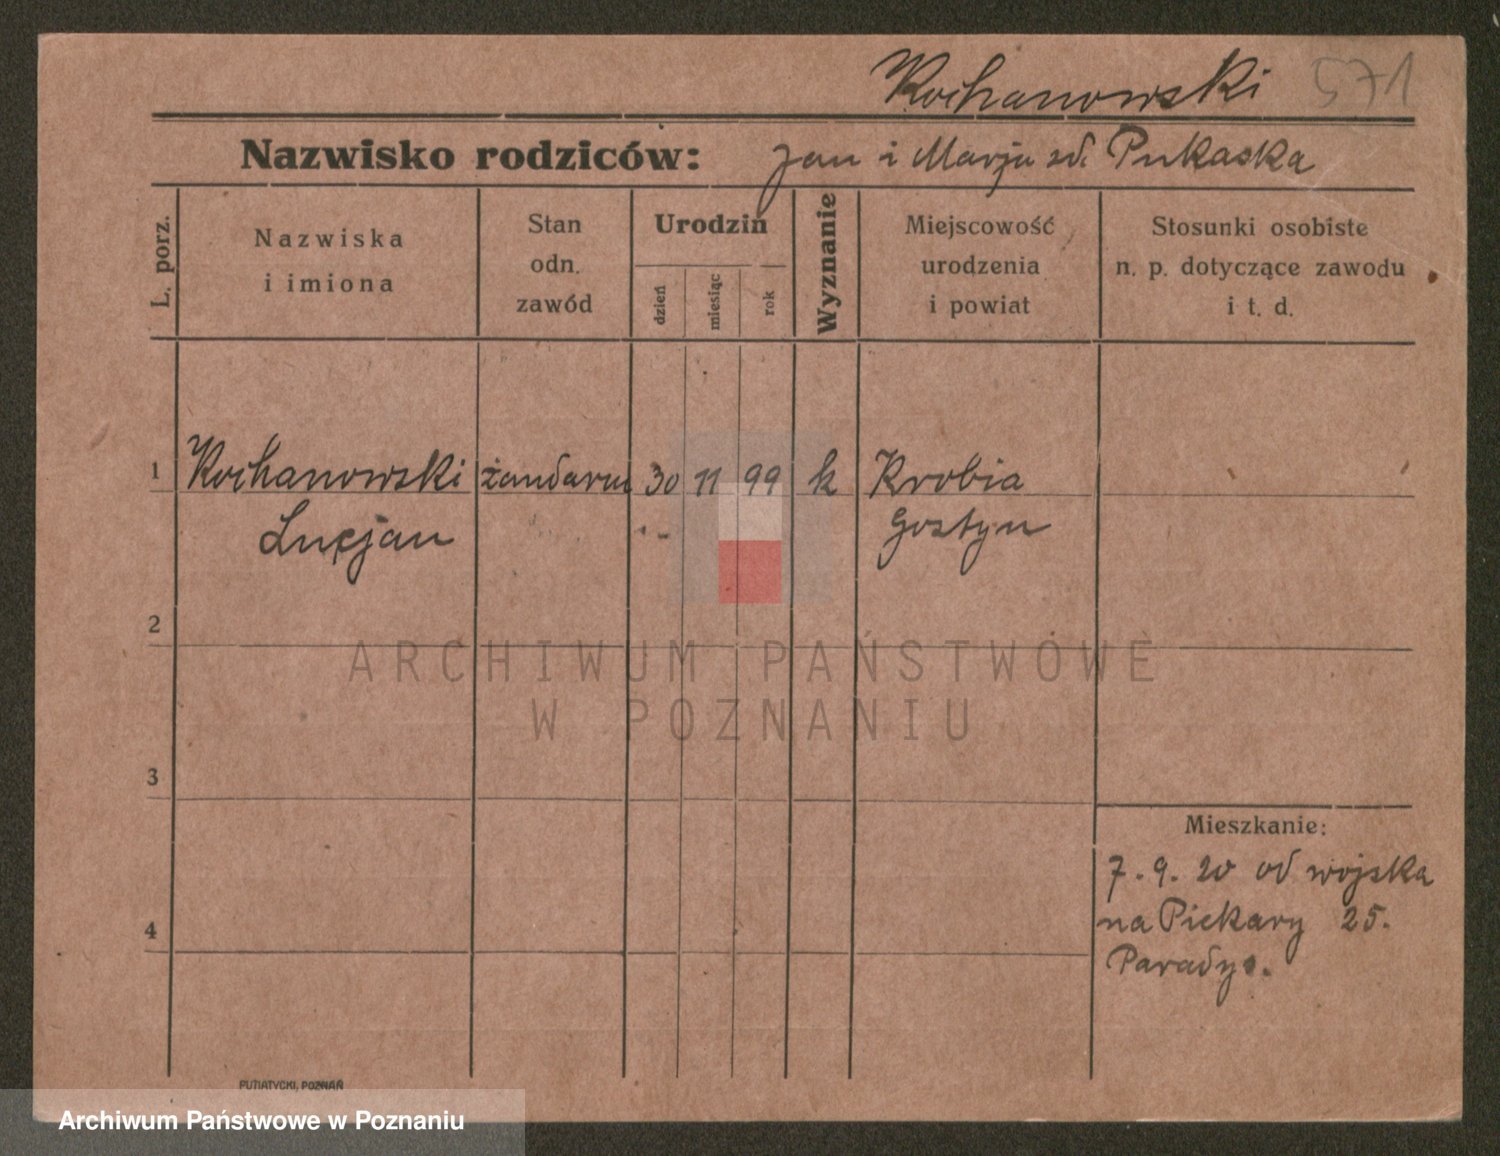 Kochanowski 571
Nazwisko rodziców: Jan i Marja zd. Pukaska
L. porz.
Nazwiska
i imiona
Stan
odn.
zawód
Urodzin
dzień
miesiąc
rok
Wyznanie
Miejscowość
urodzenia
i powiat
Stosunki osobiste
n. p. dotyczące zawodu
i t. d.
1 Kochanowski żandarm 30 11 99 k Krobia
Lucjan Gostyn
2
ARCHIWUM PAŃSTWOWE
W POZNANIU
3
Mieszkanie:
7.9.20 od wojska
na Piekary 25.
4
Paradys.
PUTIATYCKI, POZNAŃ
Archiwum Państwowe w Poznaniu